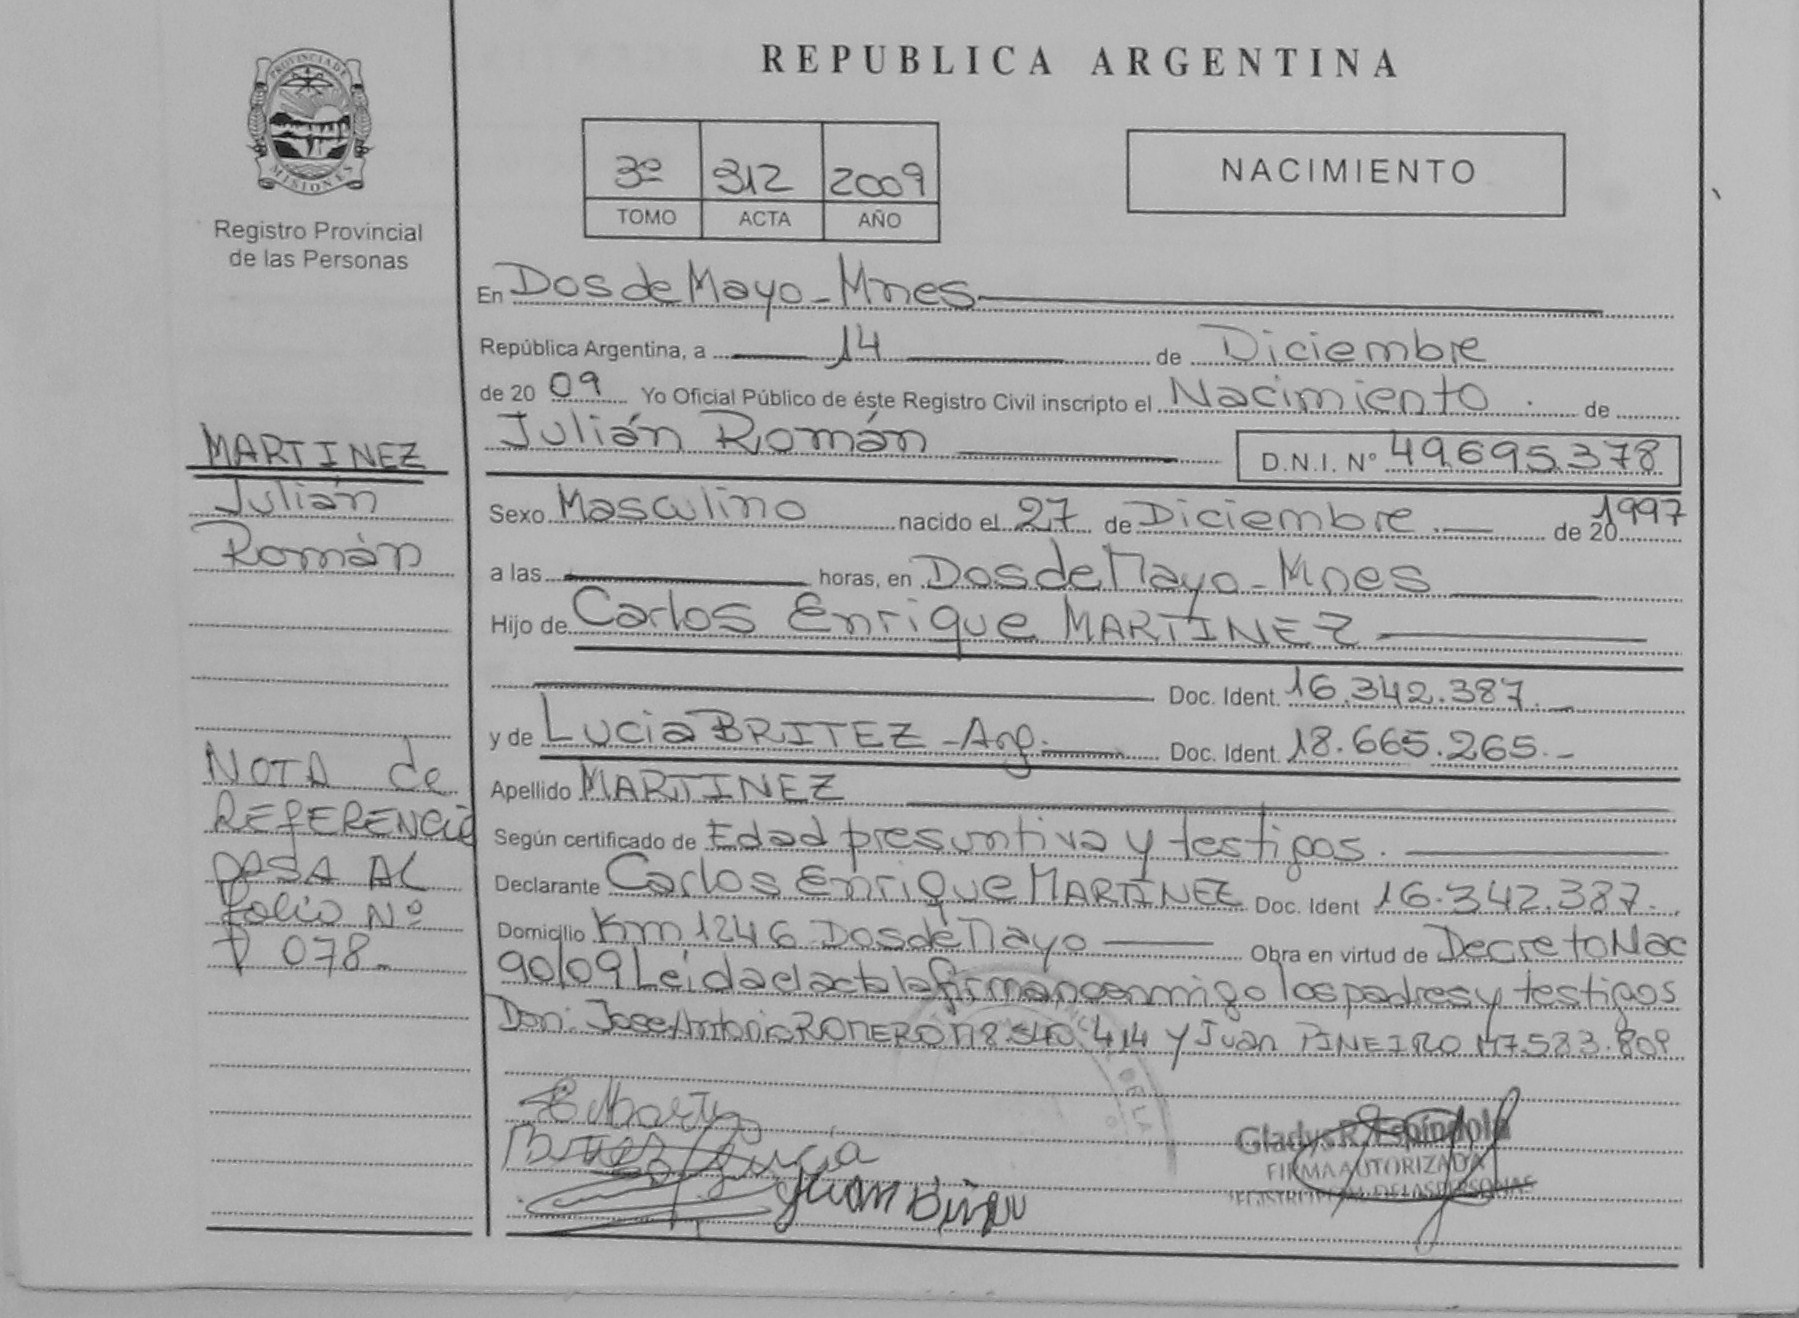 PROVINCIA DE
MISIONES
Registro Provincial
de las Personas
MARTINEZ
Julián
Román
NOTA de
REFERENCIA
PASA AL
Folio Nº
078
REPUBLICA ARGENTINA
3º 312 2009
TOMO ACTA AÑO
NACIMIENTO
En Dos de Mayo - Mnes
República Argentina, a 14 de Diciembre
de 20 09 Yo Oficial Público de éste Registro Civil inscripto el Nacimiento . de
Julián Román D.N.I. Nº 49.695.378
Sexo Masculino nacido el 27 de Diciembre . de 20 1997
a las horas, en Dos de Mayo - Mnes
Hijo de Carlos Enrique MARTINEZ
Doc. Ident. 16.342.387.
y de Lucia BRITEZ - Arg. Doc. Ident. 18.665.265.-
Apellido MARTINEZ
Según certificado de Edad presuntiva y testigos.
Declarante Carlos Enrique MARTINEZ Doc. Ident 16.342.387.
Domicilio Km 1246 Dos de Mayo Obra en virtud de Decreto Nac
90/09 Leida el acta la firman conmigo los padres y testigos
Don: Jose Antonio ROMERO M8.540.414 y Juan PINEIRO M7.523.809
DE LA
Gladys R. Espindola
FIRMA AUTORIZADA
DE LAS PERSONAS